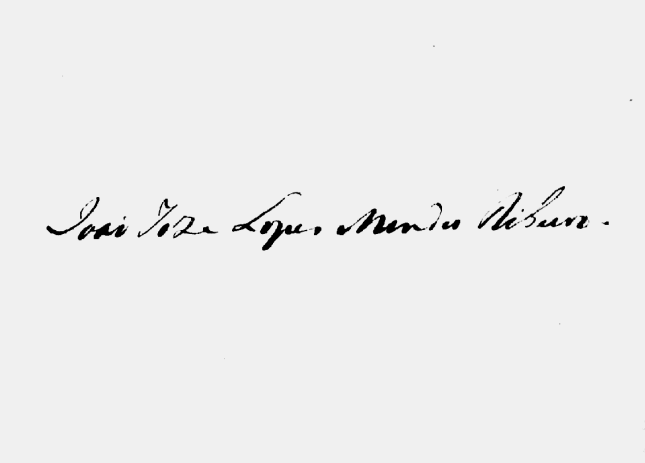 João Joze Lopes Mendes Ribeiro.